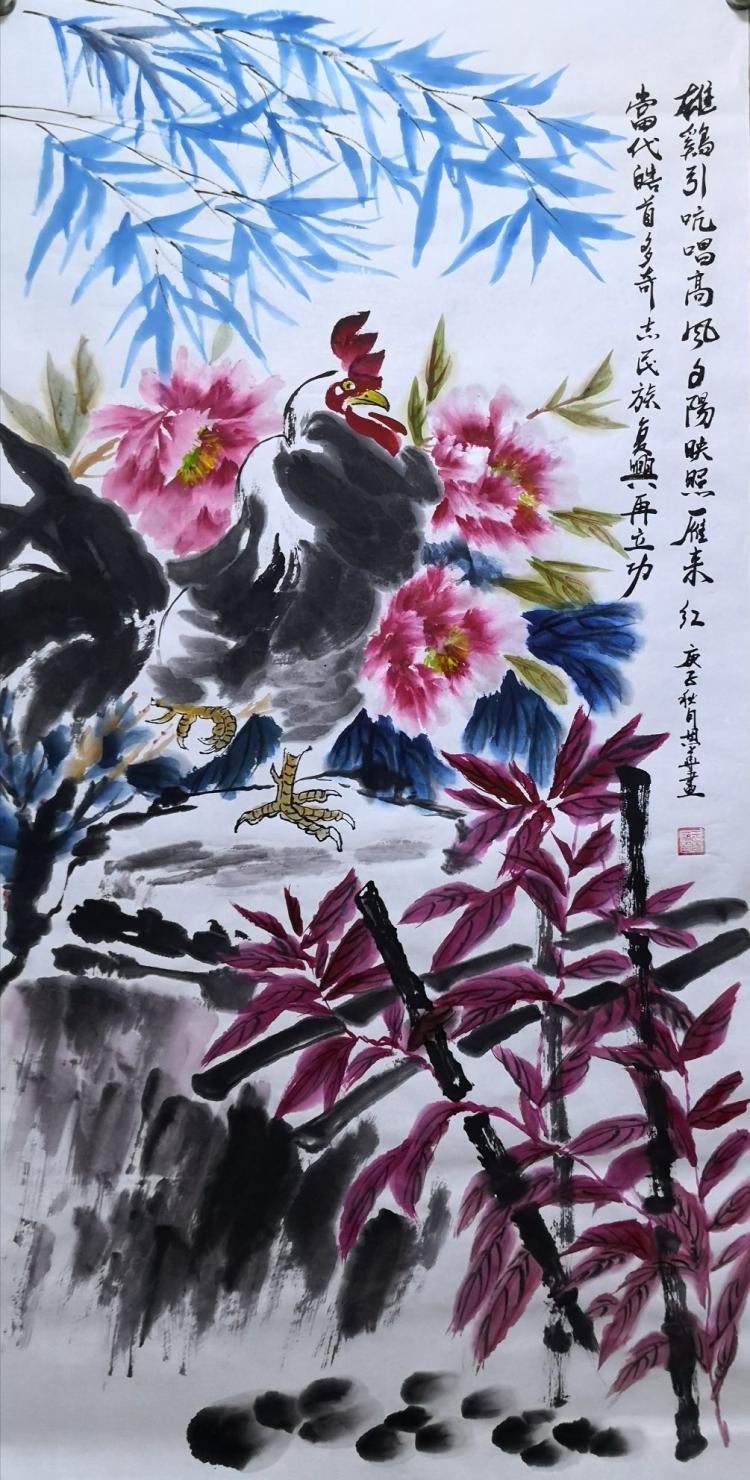 雄鷄引吭唱高風夕陽映照雁来红
當代皓首多奇志民族复興再立功
庚子秋月其華畫